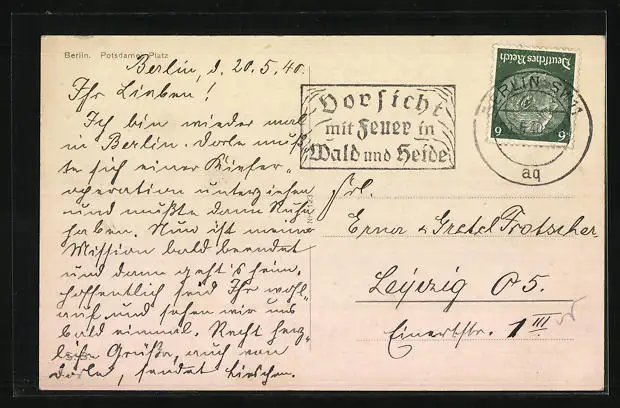 Berlin. Potsdamer Platz
Berlin, d. 20.5.40.
Ihr Lieben!
Ich bin wieder mal
in Berlin. Dorle muß-
te sich einer Kiefer-
operation unterziehen
und mußte dann Ruhe
haben. Nun ist meine
Mission bald beendet
und dann geht's heim.
Hoffentlich seid Ihr wohl-
auf und sehen wir uns
bald einmal. Recht herz-
liche Grüße, auch von
Dorle, sendet Lieschen.
Vorsicht
mit Feuer in
Wald und Heide
BERLIN SW 11
aq
Deutsches Reich
6 6
Frl.
Erna & Gretel Trotscher
Leipzig O 5.
Einertstr. 1 III